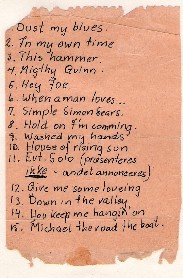 Dust my blues.
2. In my own time
3. This hammer.
4. Migthy Quinn.
5. Hey Joe
6. When aman loves..
7. Simple Simon sears.
8. Hold on I'm comming.
9. Washed my hands
10. House of rising sun
11. Evt. Solo (presenteres
ikke - andet annonceres)
12. Give me some loveing
13. Down in the valley,
14. You keep me hangin on
15. Michael the road the boat.